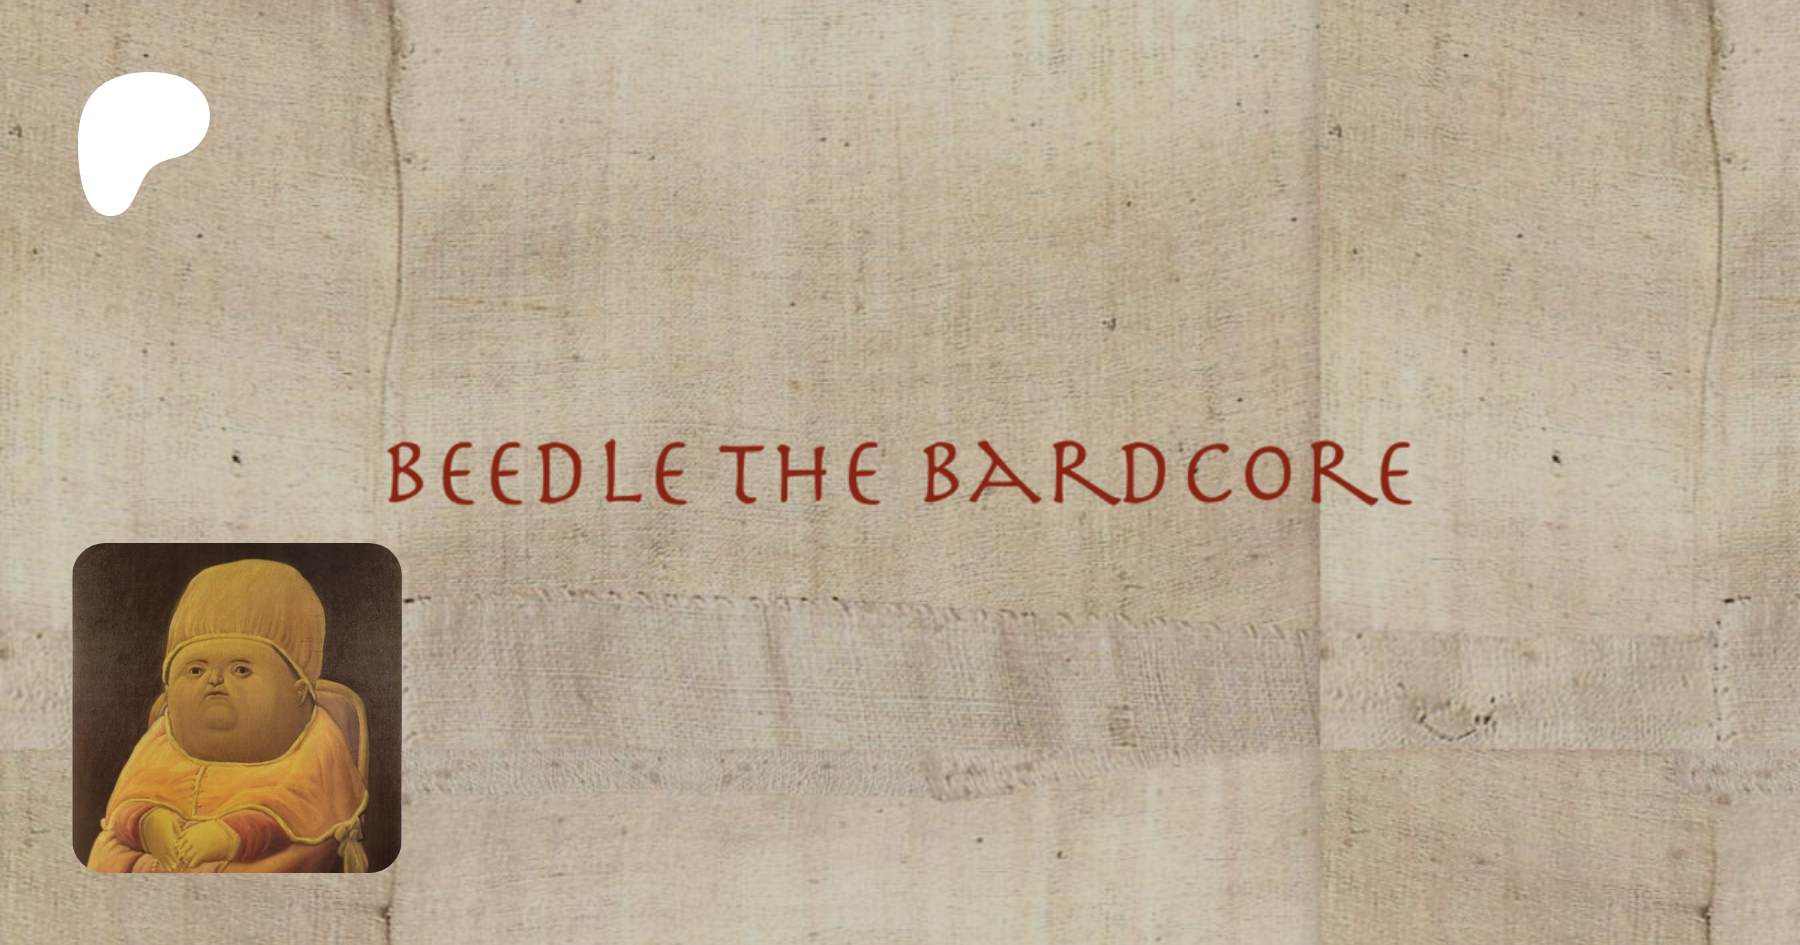 BEEDLE THE BARDCORE